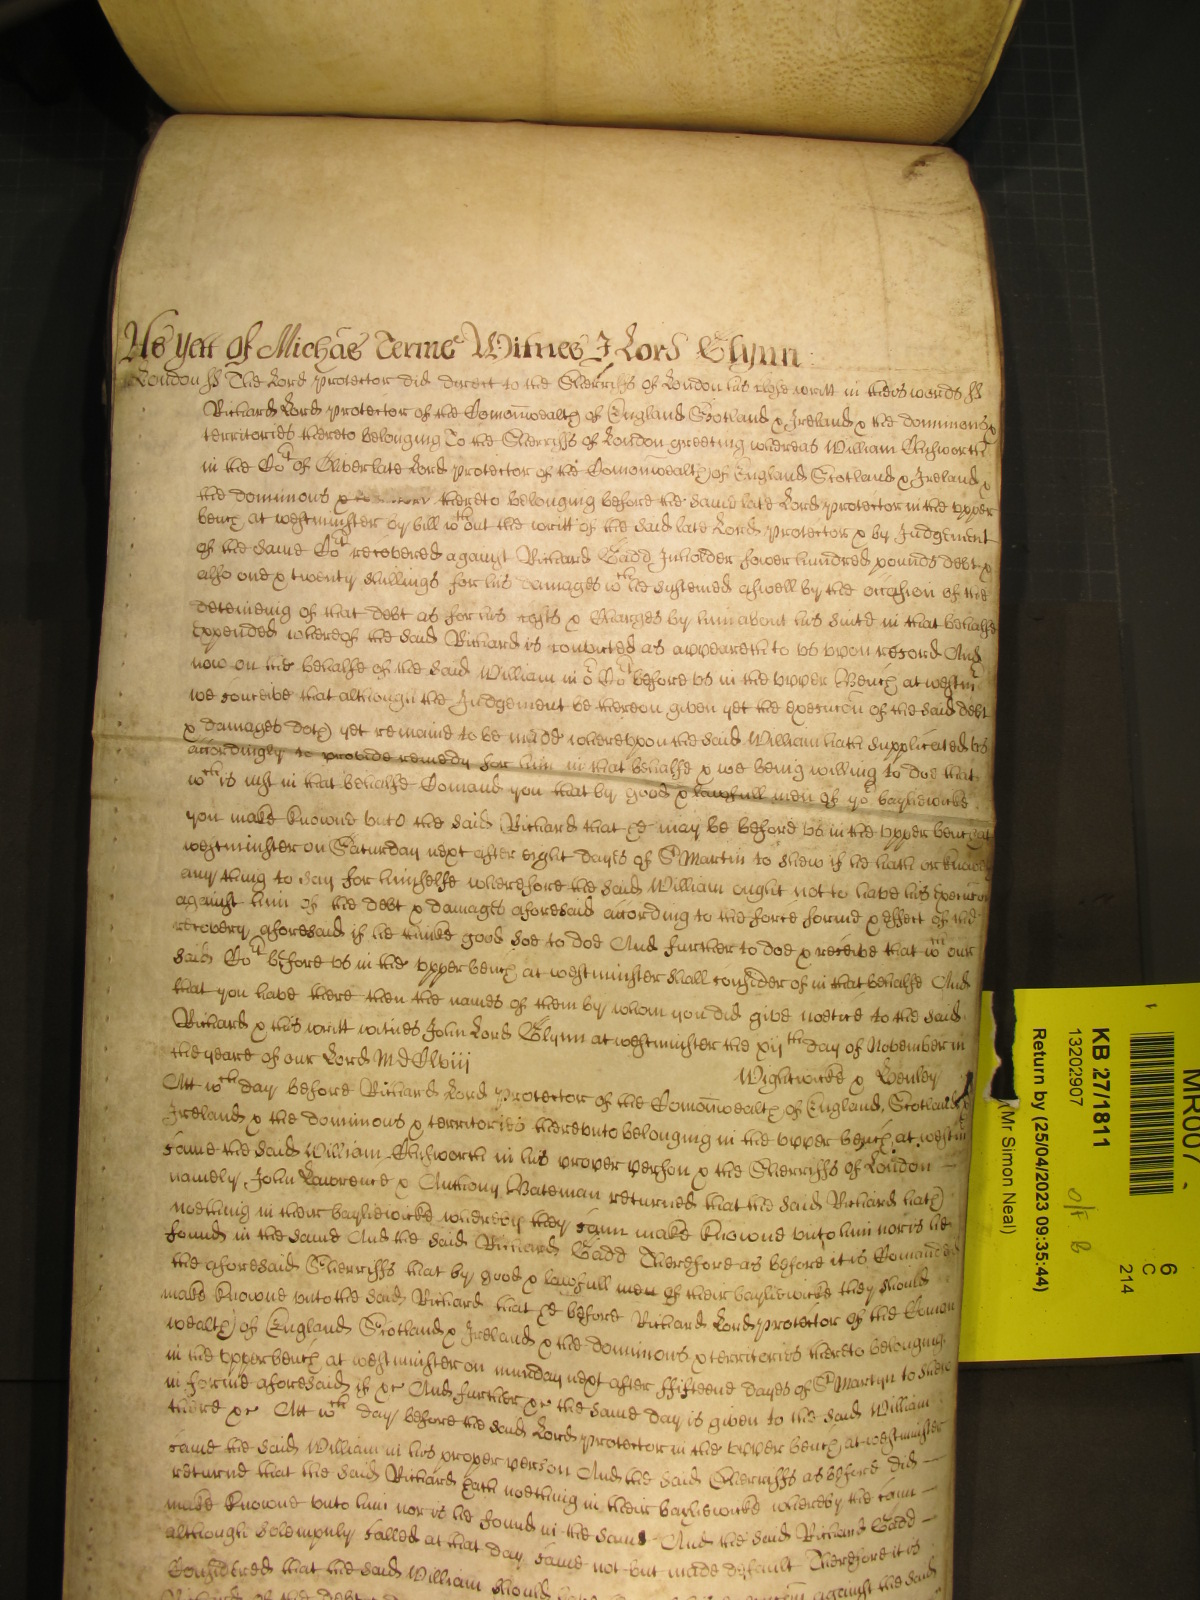 As yett of Michās Terme Witnes J Lord Glynn
London ss The Lord Protector did direct to the Sherriffs of London his close writt in theis words ss
Richard Lord Protector of the Com̄onwealth of England Scotland & Ireland & the dominions &
territories thereto belonging To the Sherriffs of London greeting whereas William Rishworth
in the Cort of Oliver late Lord Protector of the Com̄onwealth of England Scotland & Ireland &
the dominions & thereto belonging before the same late Lord Protector in the upper
bench at westminster by bill wthout the writt of the said late Lord Protector & by Judgement
of the same Cort recovered against Richard Gadd Inholder fower hundred pounds debt &
also one & twenty shillings for his damages wch he susteined aswell by the occasion of the
deteineing of that debt as for his costs & Charges by him about his suite in that behalfe
expended whereof the said Richard is convicted as appeareth to us upon record And
now on the behalfe of the said William in or Cort before us in the upper Bench at westmr
we conceive that although the Judgement be thereon given yet the execucōn of the said debt
& damages doth yet remaine to be made whereupon the said William hath supplicated us
accordingly to provide remedy for him in that behalfe & we being willing to doe that
wch is just in that behalfe Comand you that by good & lawfull men of yor bayliewicke
you make knowne unto the said Richard that he may be before us in the upper bench at
westminster on Saturday next after eight dayes of St Martin to shew if he hath or knoweth
any thing to say for himselfe wherefore the said William ought not to have his execucōn
against him of the debt & damages aforesaid according to the force forme & effect of the
recovery aforesaid if he thinke good soe to doe And further to doe & receive that wch our
said Cort before us in the upper bench at westminster shall consider of in that behalfe And
that you have there then the names of them by whom you did give notice to the said
Richard & this writt witnes John Lord Glynn at westminster the xijth day of November in
the yeare of our Lord MDClviij
Wightwicke & Henley
Att wch day before Richard Lord Protector of the Com̄onwealth of England, Scotland &
Ireland & the dominions & territories thereunto belonging in the upper bench at westmr
came the said William Rishworth in his proper person & the Sherriffs of London
namely John Lawrence & Anthony Bateman returned that the said Richard hath
noething in their bayliewicke whereby they cann make knowne unto him nor is he
found in the same And the said Richard Gadd Therefore as before it is Comanded
the aforesaid Sherriffs that by good & lawfull men of their bayliewicke they should
make knowne unto the said Richard that he before Richard Lord Protector of the Comon
wealth of England Scotland & Ireland & the dominions & territories thereto belonging
in the upper bench at westminster on munday next after fifteene dayes of St Martyn to shew
in forme aforesaid if &c And further &c the same day is given to the said William
there &c Att wch day before the said Lord Protector in the upper bench at westminster
came the said William in his proper person And the said Sherriffs as before did
returne that the said Richard hath noething in their bayliewicke whereby the cann
make knowne unto him nor is he found in the same And the said Richard Gadd
although solempnly called at that day came not but made default Therefore it is
Considered that the said William should against the said
Richard of the debt
MR007
6
C
214
KB 27/1811
13202907
Return by (25/04/2023 09:35:44)
(Mr Simon Neal)